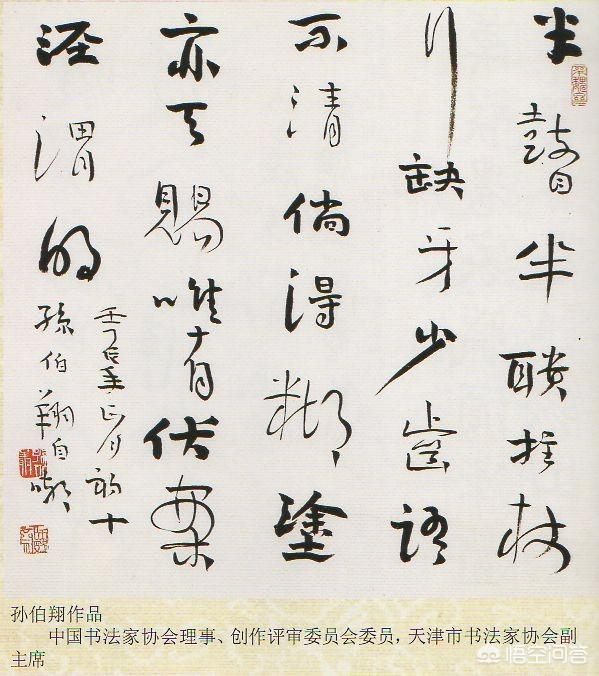 半瞽半聵拄杖
行缺牙少齒語
不清倘得糊塗
亦天賜唯有伏案
涇渭明
壬辰年正月初十
孫伯翔自嘲
孙伯翔作品
中国书法家协会理事、创作评审委员会委员，天津市书法家协会副
主席
悟空问答